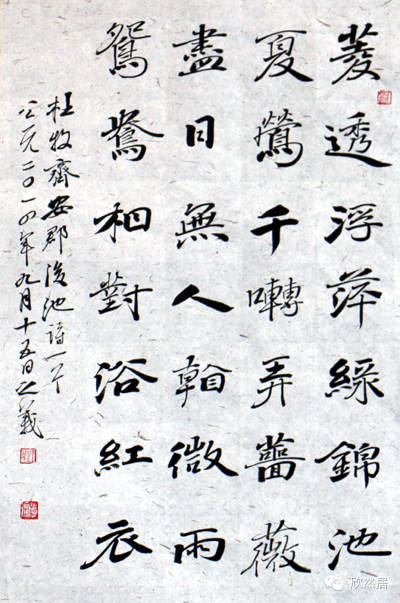 菱透浮萍綠錦池
夏鶯千囀弄薔薇
盡日無人看微雨
鴛鴦相對浴紅衣
杜牧齊安郡後池詩一首
公元二〇一四年九月十五日之義
欣然居